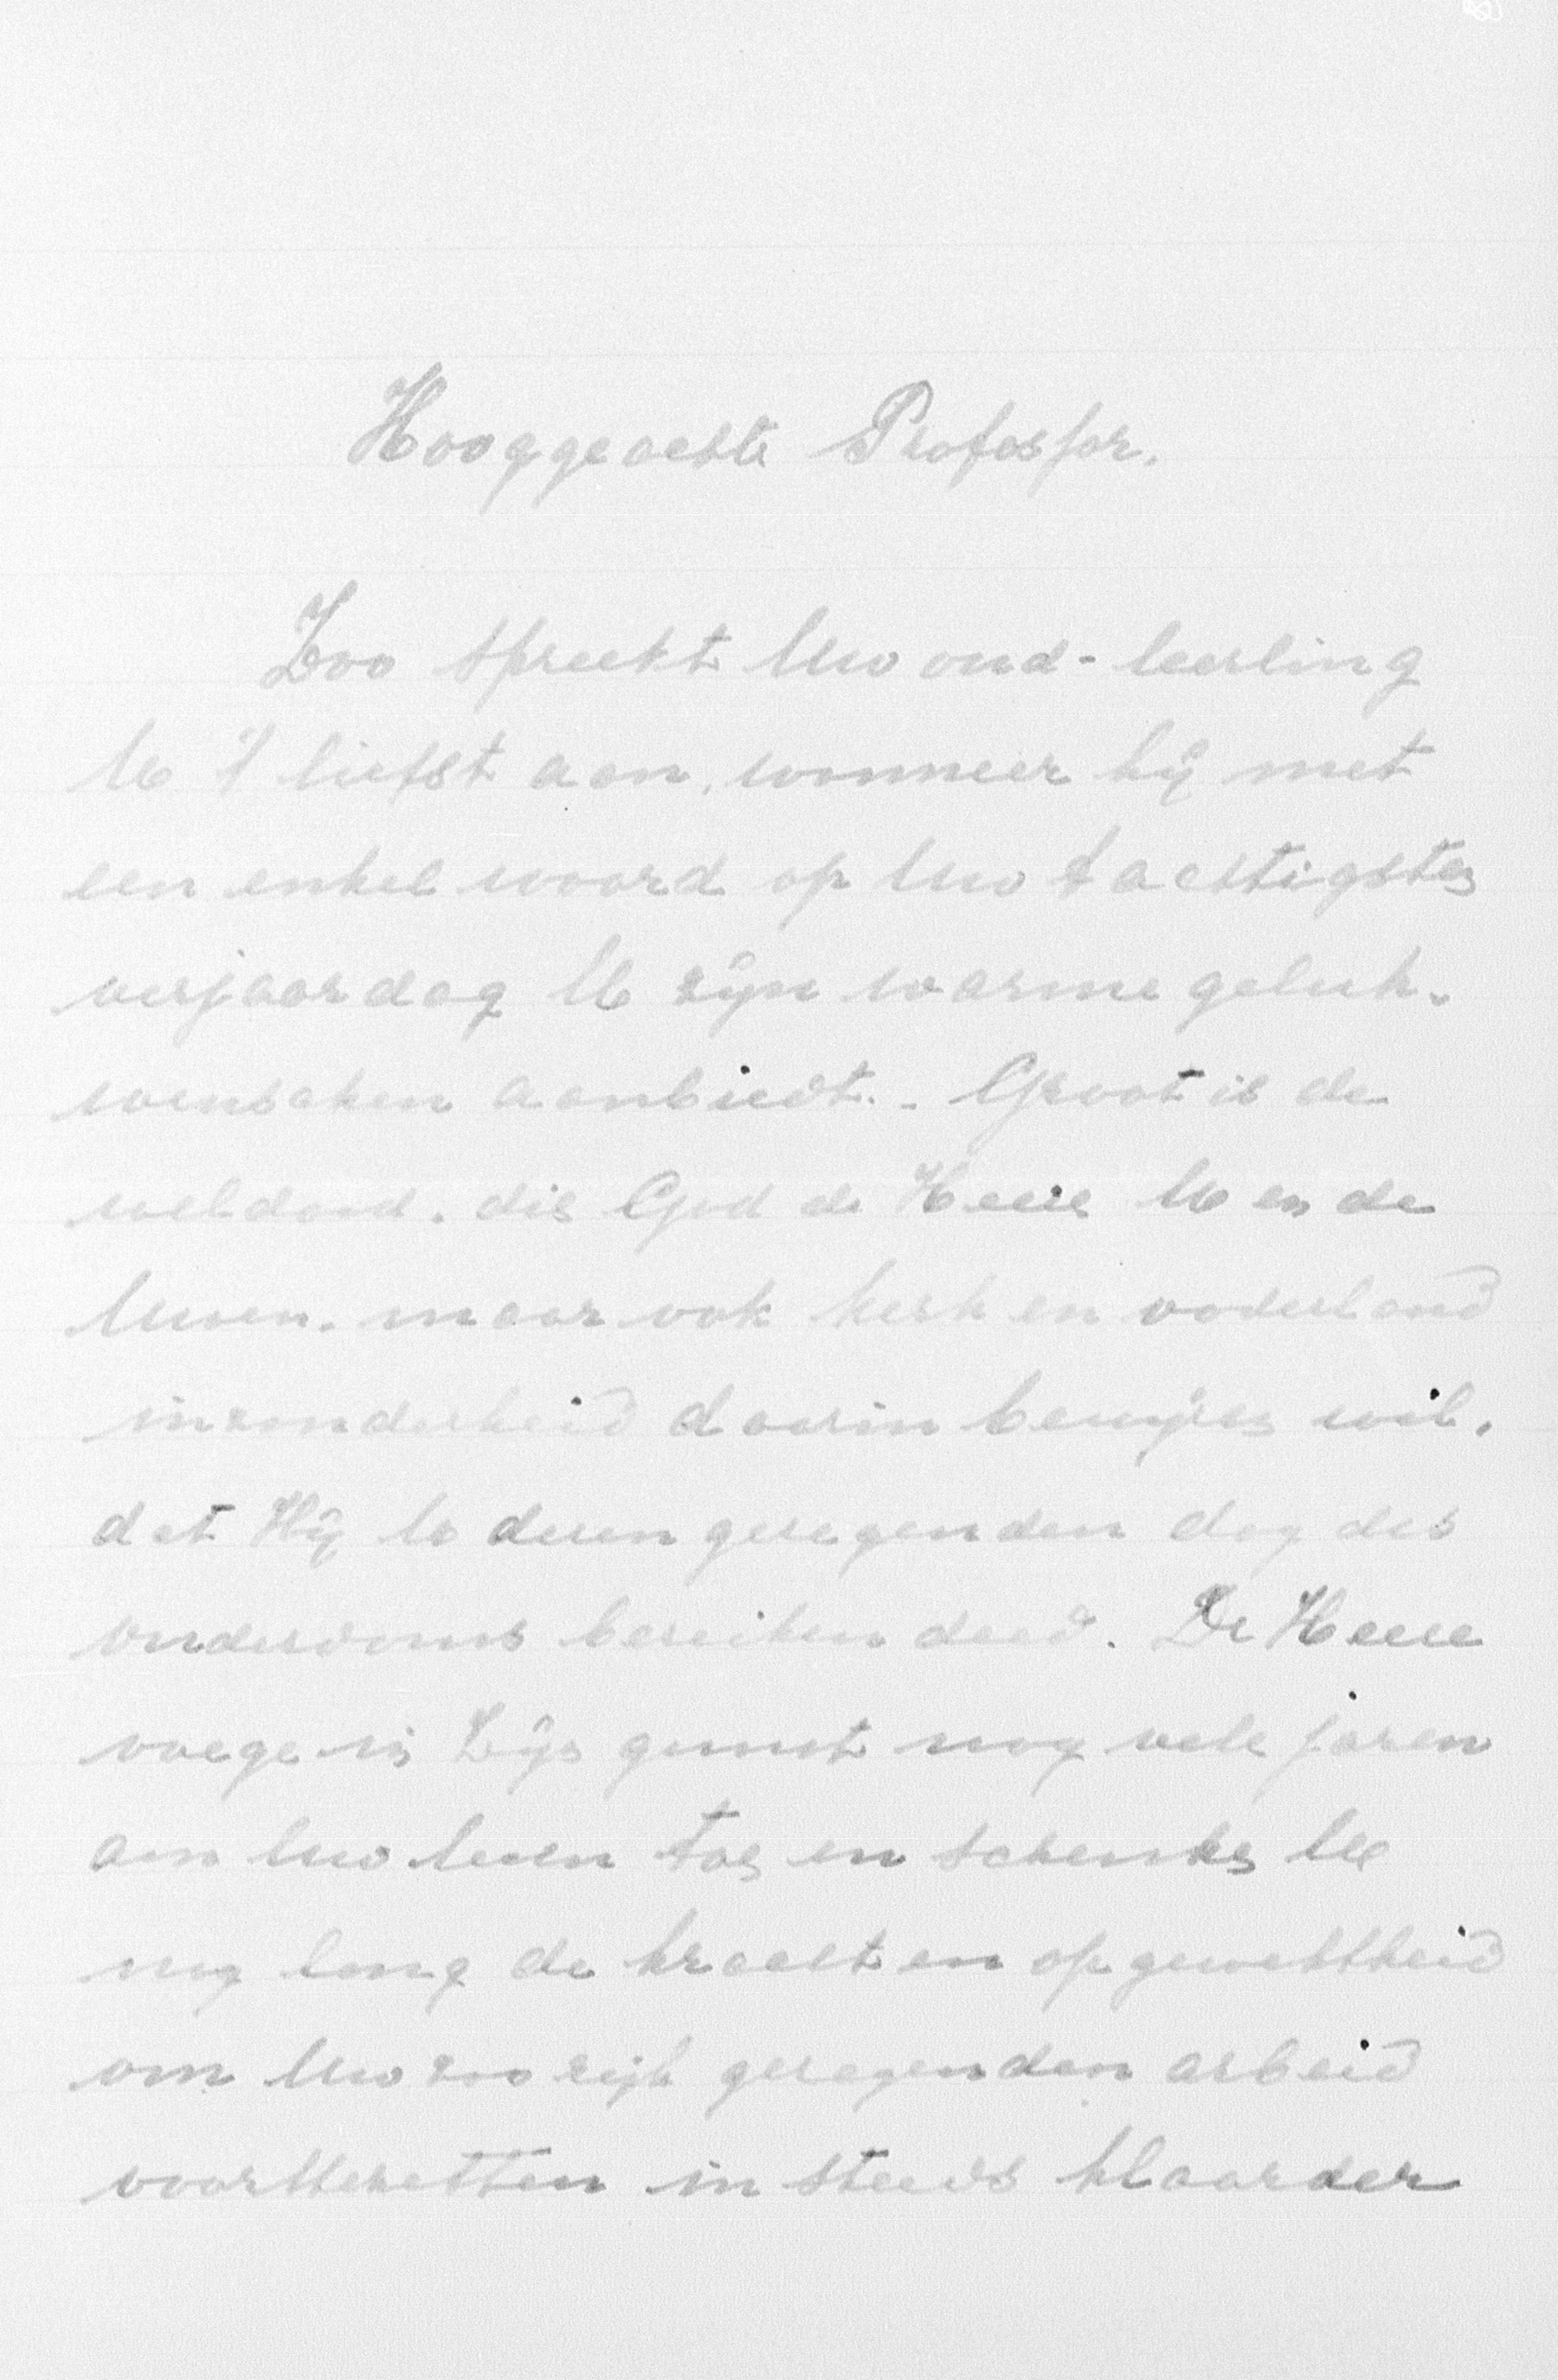 Hooggeachte Professor.
Zoo spreekt Uw oud-leerling
U 't liefst aan, wanneer hij met
een enkel woord op Uw tachtigsten
verjaardag U zijn warme geluk-
wenschen aanbiedt. - Groot is de
weldaad, die God de Heere U en de
Uwen, maar ook kerk en vaderland
inzonderheid daarin bewijzen wil,
dat Hij U dezen gezegenden dag des
ouderdoms bereiken deed. De Heere
voege in Zijn gunst nog vele jaren
aan Uw leven toe en schenke U
nog lang de kracht en opgewektheid
om Uw zoo rijk gezegenden arbeid
voorttezetten in steeds klaarder